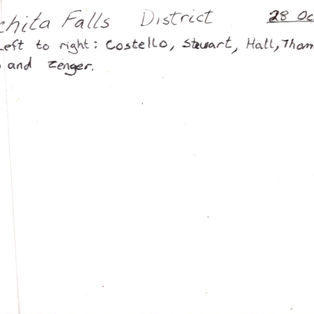 chita Falls District 28 Oc
Left to right: Costello, Stewart, Hall, Tham
and Zenger.